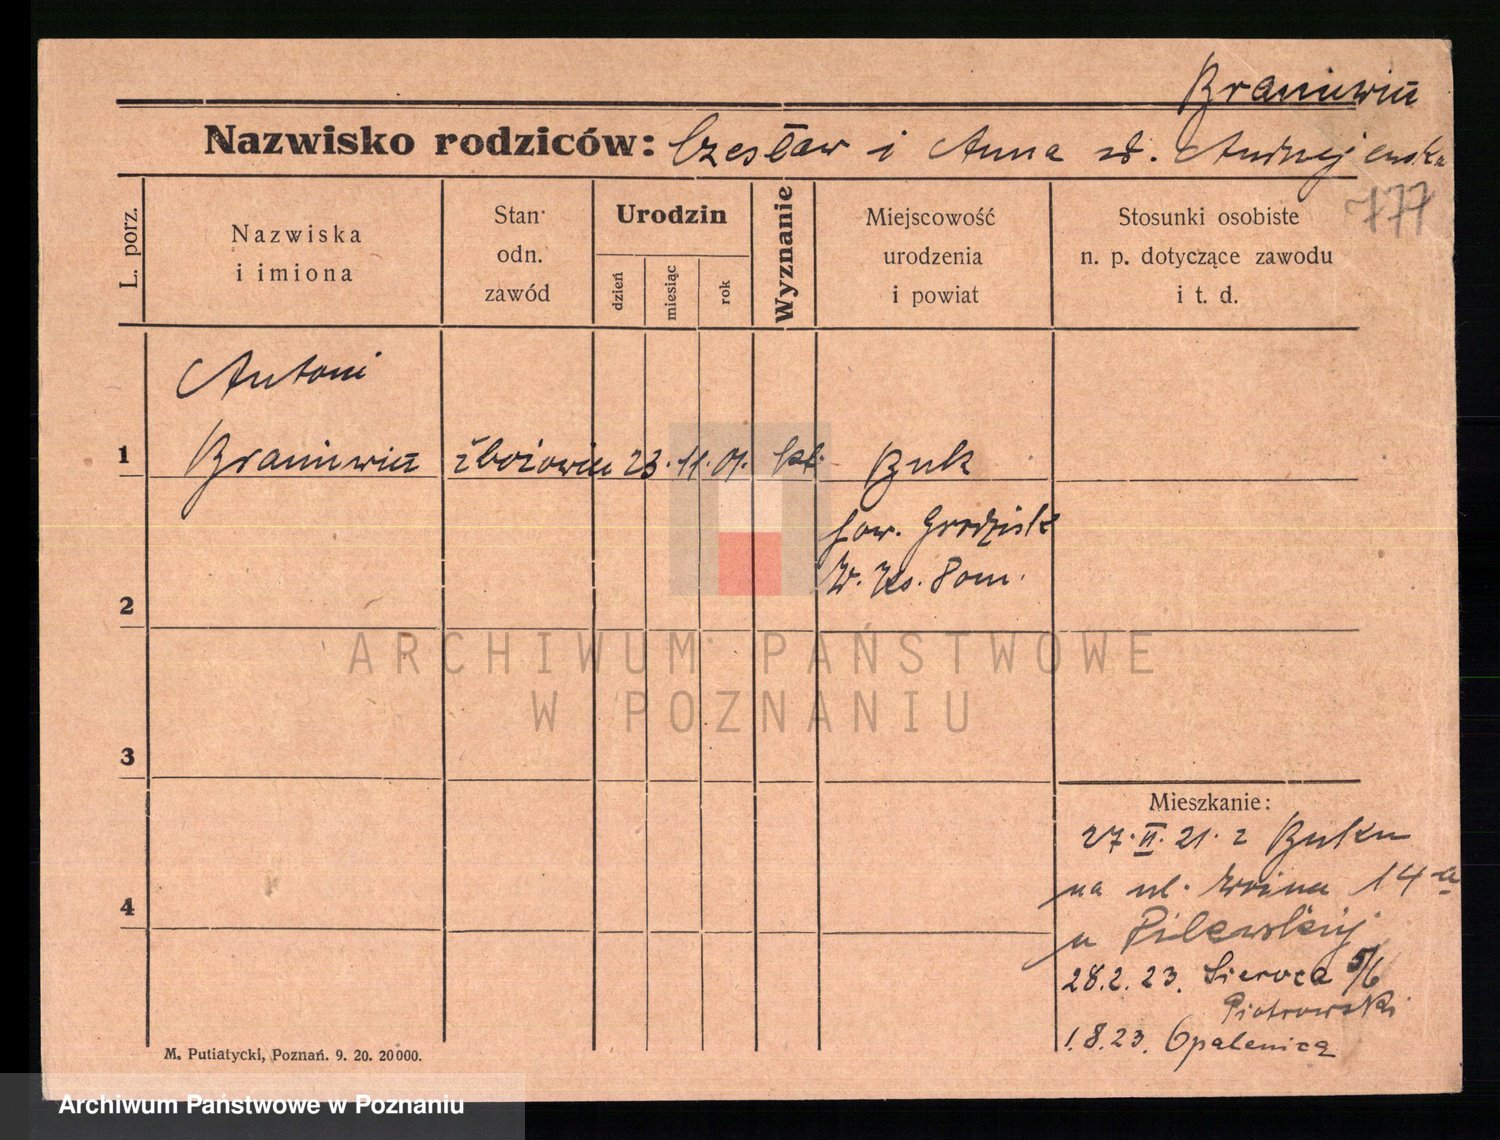 Braniewicz
Nazwisko rodziców: Czesław i Anna zd. Andrzejewska
777
L. porz.
Nazwiska
i imiona
Stan
odn.
zawód
Urodzin
dzień
miesiąc
rok
Wyznanie
Miejscowość
urodzenia
i powiat
Stosunki osobiste
n. p. dotyczące zawodu
i t. d.
Antoni
1 Braniewicz zbożowiec 23. 11. 01. kt. Buk
pow. Grodzisk
W. Ks. Pozn.
2
3
4
Mieszkanie:
27. II. 21. z Buku
na ul. 14a
u
28.2.23. Sieroca 5/6
Piotrowski
1.8.23. Opalenica
M. Putiatycki, Poznań. 9. 20. 20000.
ARCHIWUM PAŃSTWOWE
W POZNANIU
Archiwum Państwowe w Poznaniu